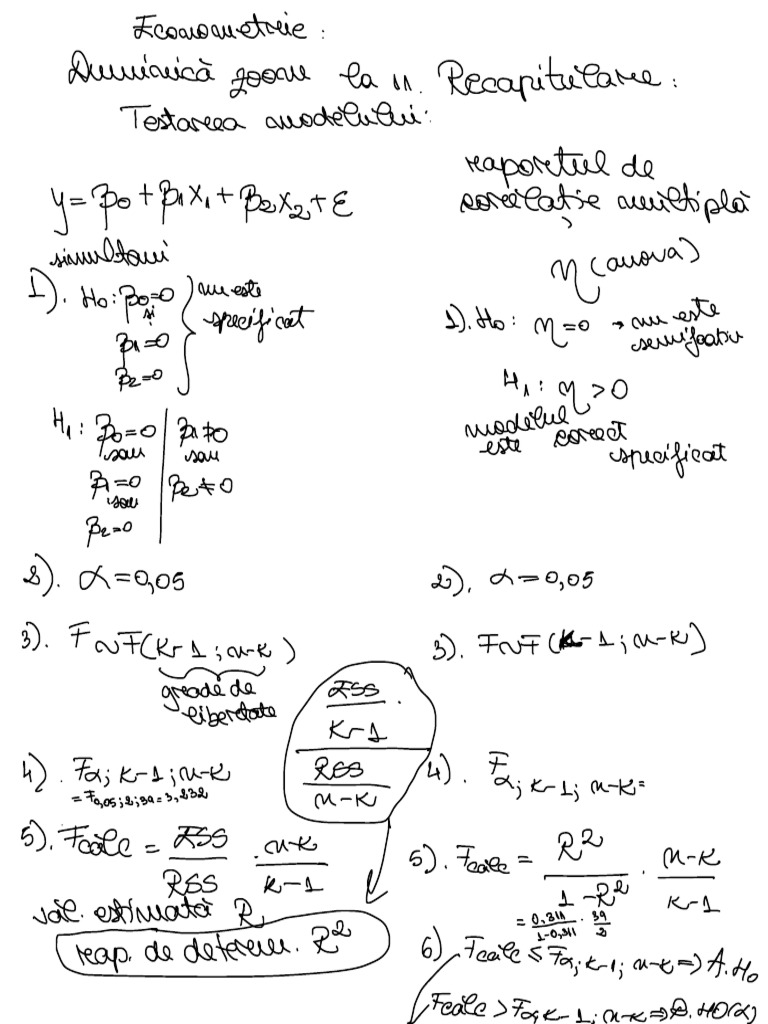 Econometrie:
Duminică zoom la 11. Recapitulare:
Testarea modelului:
y = β0 + β1x1 + β2x2 + ε
simultani
1). H0: β0=0
și
β1=0
β2=0
nu este
specificat
H1: β0=0 | β1≠0
sau | sau
β1=0 | β2≠0
sau
β2=0
2). α=0,05
3). F~F(k-1; n-k)
grade de
libertate
ESS
k-1
RSS
n-k
4). Fα; k-1; n-k
=F0,05; 2; 39 = 3,232
5). Fcalc = ESS/RSS · n-k/k-1
val. estimată R
rap. de determ. R²
raportul de
corelație multiplă
η (anova)
1). H0: η=0 → nu este
H1: η>0
modelul
este corect
specificat
2). α=0,05
3). F~F(k-1; n-k)
4). Fα; k-1; n-k=
5). Fcalc = R²/1-R² · n-k/k-1
=0,311/1-0,311 · 39/2
6). Fcalc ≤ Fα; k-1; n-k => A.H0
Fcalc > Fα, k-1; n-k => R.H0(α)